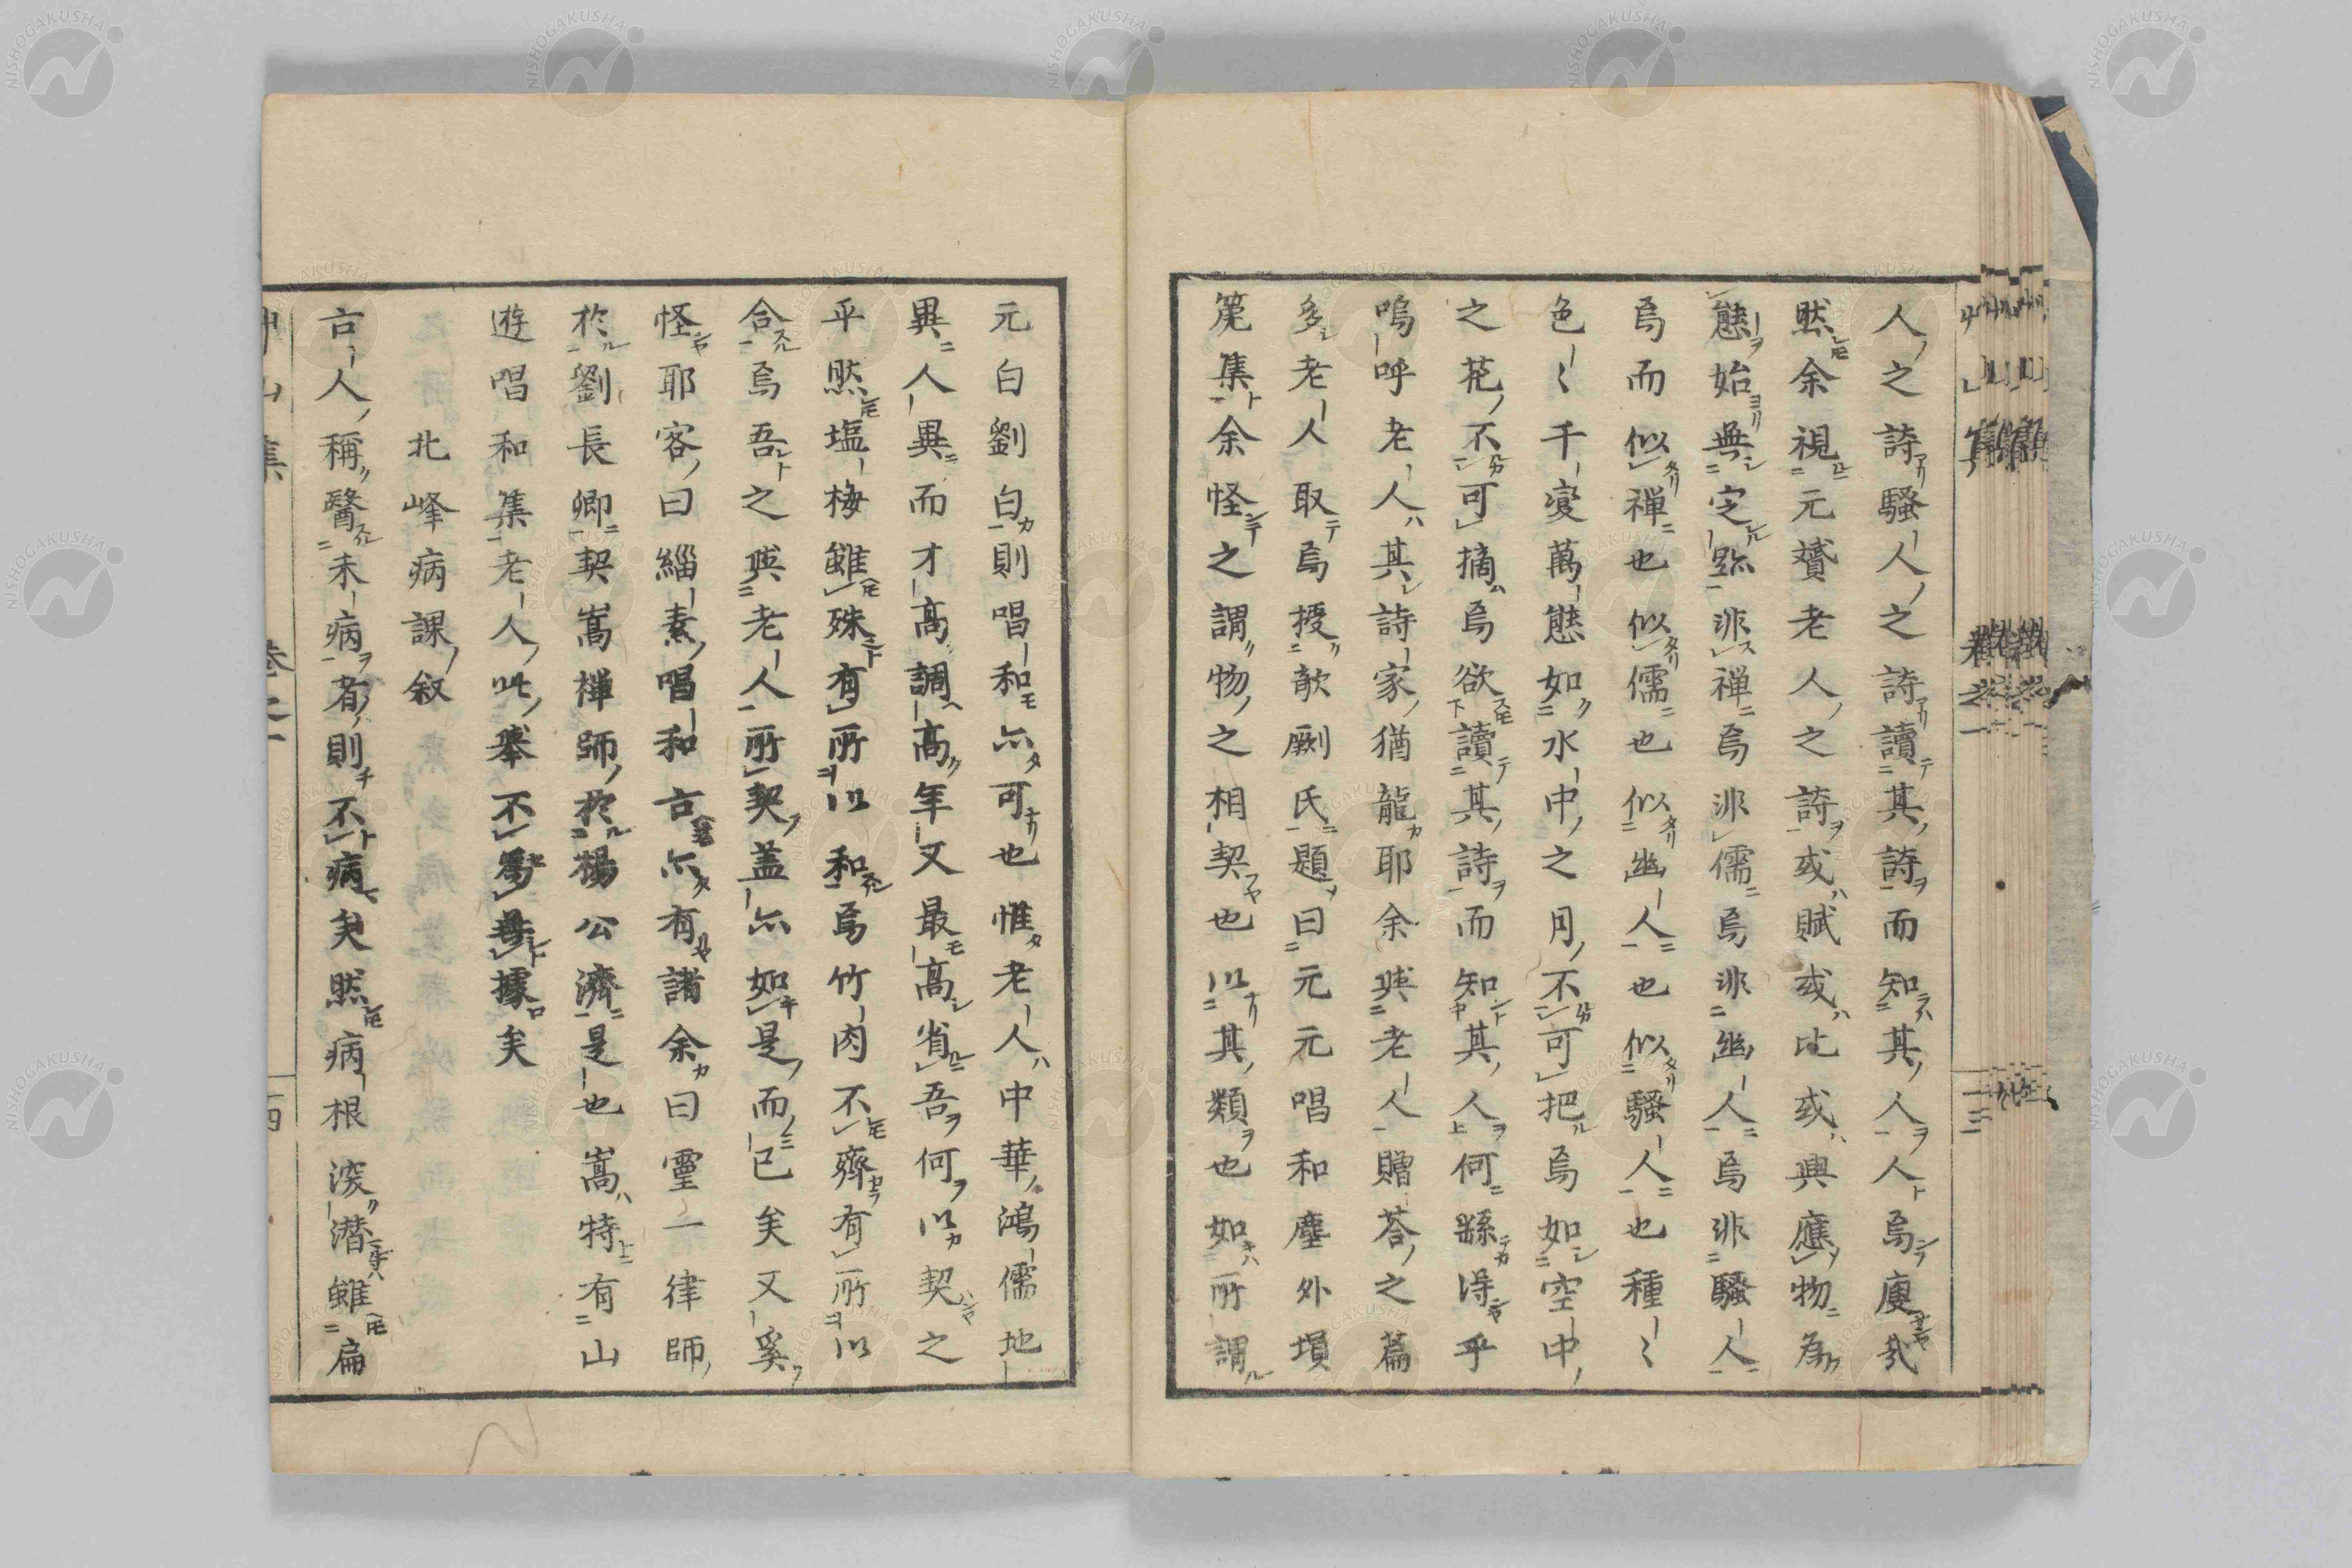 人之詩騷人之詩讀其詩而知其人人焉廋哉
然余視元贇老人之詩或賦或比或興應物為
態始無定跡非禪焉非儒焉非幽人焉非騷人
焉而似禪也似儒也似幽人也似騷人也種〻
色〻千變萬態如水中之月不可把焉如空中
之花不可摘焉欲讀其詩而知其人何繇得乎
嗚呼老人其詩家猶龍耶余與老人贈荅之篇
多老人取焉授歆劂氏題曰元元唱和塵外塤
箎集余怪之謂物之相契也以其類也如所謂
元白劉白則唱和亦可也惟老人中華鴻儒地
異人異而才高調高年又最高省吾何以契之
乎然塩梅雖殊有所以和焉竹肉不齊有所以
合焉吾之與老人所契盖亦如是而已矣又奚
怪耶客曰緇素唱和古亦有諸余曰靈一律師
於劉長卿契嵩禅師於楊公濟是也嵩特有山
遊唱和集老人此舉不為無據矣
北峰病課叙
古人稱醫未病者則不病矣然病根深潜雖扁
NISHOGAKUSHA